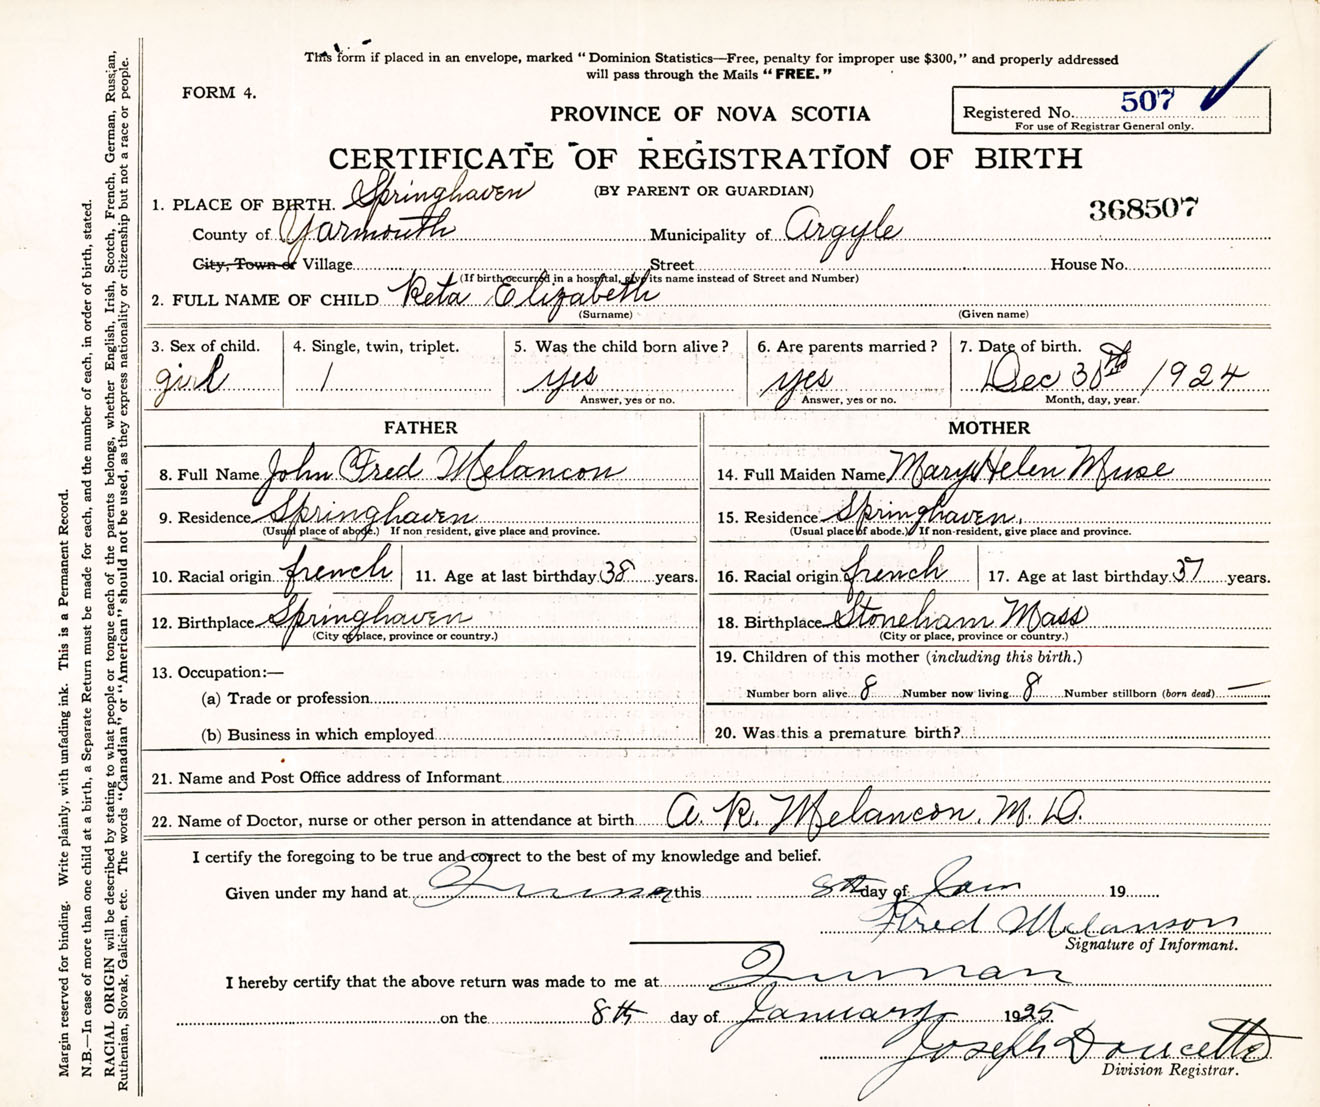 This form if placed in an envelope, marked "Dominion Statistics—Free, penalty for improper use $300," and properly addressed
will pass through the Mails "FREE."
FORM 4.
Registered No. 507
For use of Registrar General only.
PROVINCE OF NOVA SCOTIA
CERTIFICATE OF REGISTRATION OF BIRTH
(BY PARENT OR GUARDIAN)
368507
1. PLACE OF BIRTH. Springhaven
County of Yarmouth Municipality of Argyle
City, Town or Village Street House No.
(If birth occurred in a hospital, give its name instead of Street and Number)
2. FULL NAME OF CHILD Reta Elizabeth
(Surname) (Given name)
3. Sex of child. 4. Single, twin, triplet. 5. Was the child born alive? 6. Are parents married? 7. Date of birth.
girl 1 yes yes Dec 30th 1924
Answer, yes or no. Answer, yes or no. Month, day, year.
FATHER MOTHER
8. Full Name John Fred Melancon 14. Full Maiden Name Mary Helen Muse
9. Residence Springhaven 15. Residence Springhaven.
(Usual place of abode.) If non resident, give place and province. (Usual place of abode.) If non-resident, give place and province.
10. Racial origin french 11. Age at last birthday 38 years. 16. Racial origin french 17. Age at last birthday 37 years.
12. Birthplace Springhaven 18. Birthplace Stoneham Mass
(City or place, province or country.) (City or place, province or country.)
13. Occupation:— 19. Children of this mother (including this birth.)
(a) Trade or profession Number born alive 8 Number now living 8 Number stillborn (born dead) —
(b) Business in which employed 20. Was this a premature birth?
21. Name and Post Office address of Informant
22. Name of Doctor, nurse or other person in attendance at birth A. R. Melancon. M. D.
I certify the foregoing to be true and correct to the best of my knowledge and belief.
Given under my hand at this 8th day of Jan 19
Fred Melanson
Signature of Informant.
I hereby certify that the above return was made to me at
on the 8th day of January 1925
Joseph Doucette
Division Registrar.
Margin reserved for binding. Write plainly, with unfading ink. This is a Permanent Record.
N.B.—In case of more than one child at a birth, a Separate Return must be made for each, and the number of each, in order of birth, stated.
RACIAL ORIGIN will be described by stating to what people or tongue each of the parents belongs, whether English, Irish, Scotch, French, German, Russian,
Ruthenian, Slovak, Galician, etc. The words "Canadian" or "American" should not be used, as they express nationality or citizenship but not a race or people.